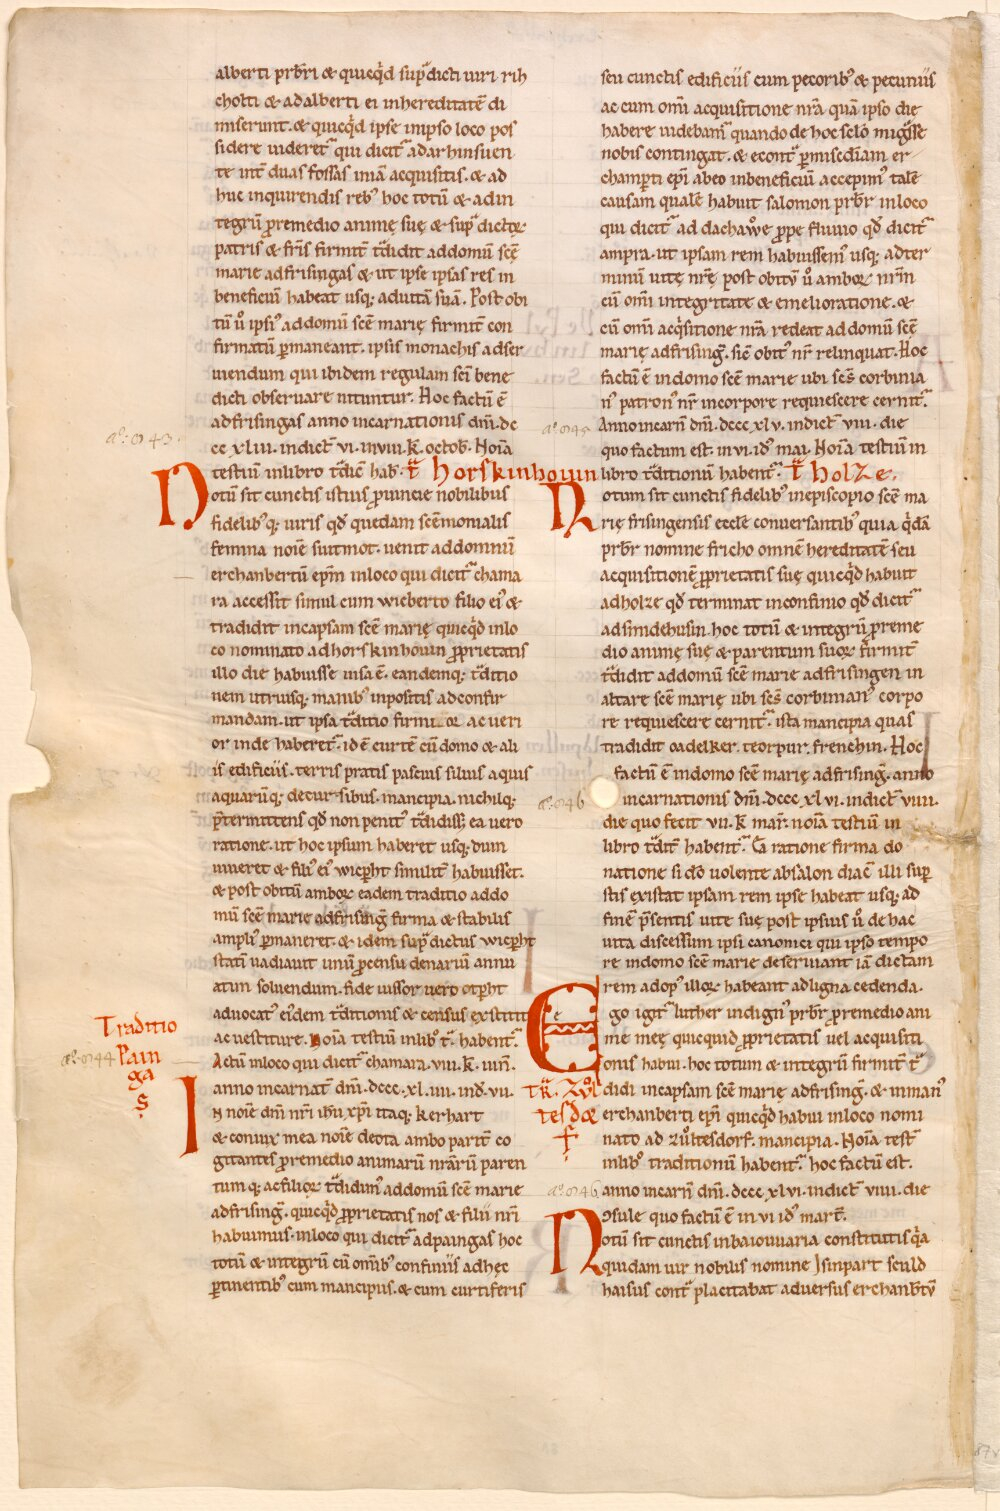 alberti prb̄ri & quicq̇d sup̄dicti uiri rih
cholti & adalberti ei inhereditatē di
miserunt. & quicq̇d ipse inipso loco pos
sidere uideret᷑ qui dicit᷑ adarhinsuen
te int̄ duas fossas iniā acquisitis. & ad
huc inquirendis reb; hoc totū & adin
tegrū ꝓremedio animę suę & sup̄ dictoꝝ
patris & fr̄is firmit̄ t̄didit addomū sc̄ę
marie adfrisingas & ut ipse ipsas res in
beneficiū habeat usq; aduitā suā. Post obi
tū ů ipsi᾽ addomū sc̄e marię firmit̄ con
firmatū ꝑmaneant. ipsis monachis adser
uiendum qui ibidem regulam sc̄i bene
dicti obseruare nituntur. Hoc factū ē
adfrisingas anno incarnationis dn̄i. dc
cc xl iii. indict̄ vi. inviii. k̄. octob̄. Nōia
testiū inlibro t̄dic̄ hab̄. T̄ horskinhouun
Notū sit cunctis istius ꝓuincie nobilibus
fidelib᾽q; uiris qd̄ quedam sc̄emonialis
femina nōie suitmot. uenit addomnū
erchanbertū ep̄m inloco qui dicit᷑ chama
ra accessit simul cum wicberto filio ei᾽ &
tradidit incapsam sc̄e marię quicq̇d inlo
co nominato adhorskinhouun ꝓprietatis
illo die habuisse uisa ē. eandemq; t̄ditio
nem utriusq; manib᾽ inpositis adconfir
mandam. ut ipsa t̄ditio firmior ac ueri
or inde haberet᷑. id ē curtē cū domo & ali
is edificiis. terris pratis pascuis siluis aquis
aquarūq; decursibus. mancipia. nichilq;
p̄termittens qd̄ non penit᾽ t̄didiss; ea uero
ratione. ut hoc ipsum haberet usq; dum
uiueret & fili᾽ ei᾽ wicp̄ht similit̄ habuisset.
& post obitū amboꝝ eadem traditio addo
mū sc̄e marie adfrisinḡ firma & stabilis
ampli᾽ ꝑmaneret. & idem sup̄dictus wicp̄ht
statī uadiauit unū ꝓcensu denariū annu
atim soluendum. fide iussor uero otp̄ht
aduocat᾽ ei᾽dem t̄ditionis & census exstitit
ac uestiture. Nōia testiū inlib̄ t̄. habent᷑.
Actū inloco qui dicit᷑ chamara. viii. k̄. iun̄.
anno incarnat̄ dn̄i. dccc. xl. iiii. ind̄. vii.
In nōie dn̄i nr̄i ih̄u xp̄i itaq; kerhart
& coniux mea nōie deota ambo parit̄ co
gitantes ꝓremedio animarū nr̄arū paren
tum q; ac filioꝝ t̄didim᾽ addomū sc̄e marie
adfrisinḡ. quicq̇d ꝓprietatis nos & filii nr̄i
habuimus. inloco qui dicit᷑ adpaingas hoc
totū & integrū cū om̄ib᾽ confiniis adhęc
ꝑtinentib᾽ cum mancipiis. & cum curtiferis
aº. 843.
Traditio
aº. 844 Pain
ga
s
seu cunctis edificiis cum pecorib᾽ & pecuniis
ac cum om̄i acquisitione nr̄a quā ipso die
habere uidebam᷑ quando de hoc sc̄lo migᷓsse
nobis contingat. & econt̄ ꝑmisc̄diam er
champ̄ti ep̄i abeo inbeneficiū accepim᾽ talē
causam qualē habuit salomon prb̄r inloco
qui dicit᷑ ad dachaůe ꝓpe fluuio qd̄ dicit᷑
ampra. ut ipsam rem habuissem᾽ usq; adter
minū uitę nr̄ę post obitū ů amboꝝ nr̄m
cū om̄i integritate & emelioratione. &
cū om̄i acq̇sitione nr̄a redeat addomū sc̄e
marię adfrisinḡ. sic̄ obit᾽ nr̄ relinquat. Hoc
factū ē indomo sc̄e marie ubi sc̄s corbinia
n᾽ patron᾽ nr̄ incorpore requiescere cernit᷑.
Anno incarn̄ dn̄i. dccc xl v. indict̄ viii. die
quo factum est. in vi. id᾽ mai. Nōia testiū in
libro t̄ditionū habent᷑. T̄ holze.
Notum sit cunctis fidelib᾽ inepiscopio sc̄e ma
rię frisingensis eccl̄e conuersantib᾽ quia q̇dā
prb̄r nomine fricho omnē hereditatē seu
acquisitionē ꝓprietatis suę quicq̇d habuit
adholze qd̄ terminat inconfinio qd̄ dicit᷑
adsinidehusin. hoc totū & integrū ꝓreme
dio animę suę & parentum suoꝝ firmit̄
t̄didit addomū sc̄e marie adfrisingen in
altare sc̄e marię ubi sc̄s corbinian᾽ corpo
re requiescere cernit᷑. ista mancipia quas
tradidit oadelker. teorpur. frenchin. Hoc
factū ē indomo sc̄e marię adfrisinḡ. anno
incarnationis dn̄i. dccc. xl vi. indict̄ viiii.
die quo fecit vii. k̄ mar̄. nōia testiū in
libro t̄dit̄ habent᷑. Ea ratione firma do
natione si dō uolente absalon diac̄ illi sup̄
stis existat ipsam rem ipse habeat usq; ad
finē p̄sentis uite suę post ipsius ů de hac
uita discessum ipsi canonici qui ipso tempo
re indomo sc̄e marie deseruiant iā dictam
rem adop᾽ illoꝝ habeant adligna cedenda.
Ego igit᷑ luther indign᾽ prb̄r ꝓremedio ani
me meę quicquid ꝓprietatis uel acquisiti
onis habui. hoc totum & integrū firmit̄ t̄
didi incapsam sc̄e marię adfrisinḡ. & inman᾽
erchanberti ep̄i quicq̇d habui inloco nomi
nato ad zůltesdorf. mancipia. Nōia test̄
inlib᾽ traditionū habent᷑. hoc factū est.
anno incarn̄ dn̄i. dccc. xl vi. indict̄ viiii. die
ꝯsule quo factū ē in vi id᾽ mart̄.
Notū sit cunctis inbaiouuaria constitutis q̇a
quidam uir nobilis nomine Isinpart sculd
haisus cont̄ placitabat aduersus erchanb̄tū
aº. 845
aº. 846
T̄R. Zůl
tesdo
rf
aº. 846
87v